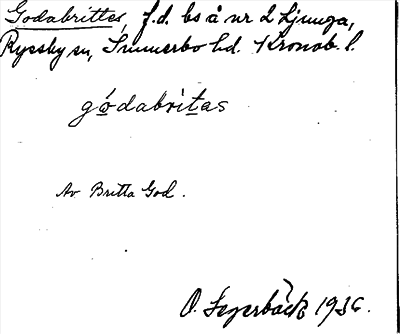 Godabrittes, f.d. bs å nr 2 Ljunga,
Ryssby sn, Sunnerbo hd. Kronob. l.
gódabrìtas
Av Britta God.
O. 1936.